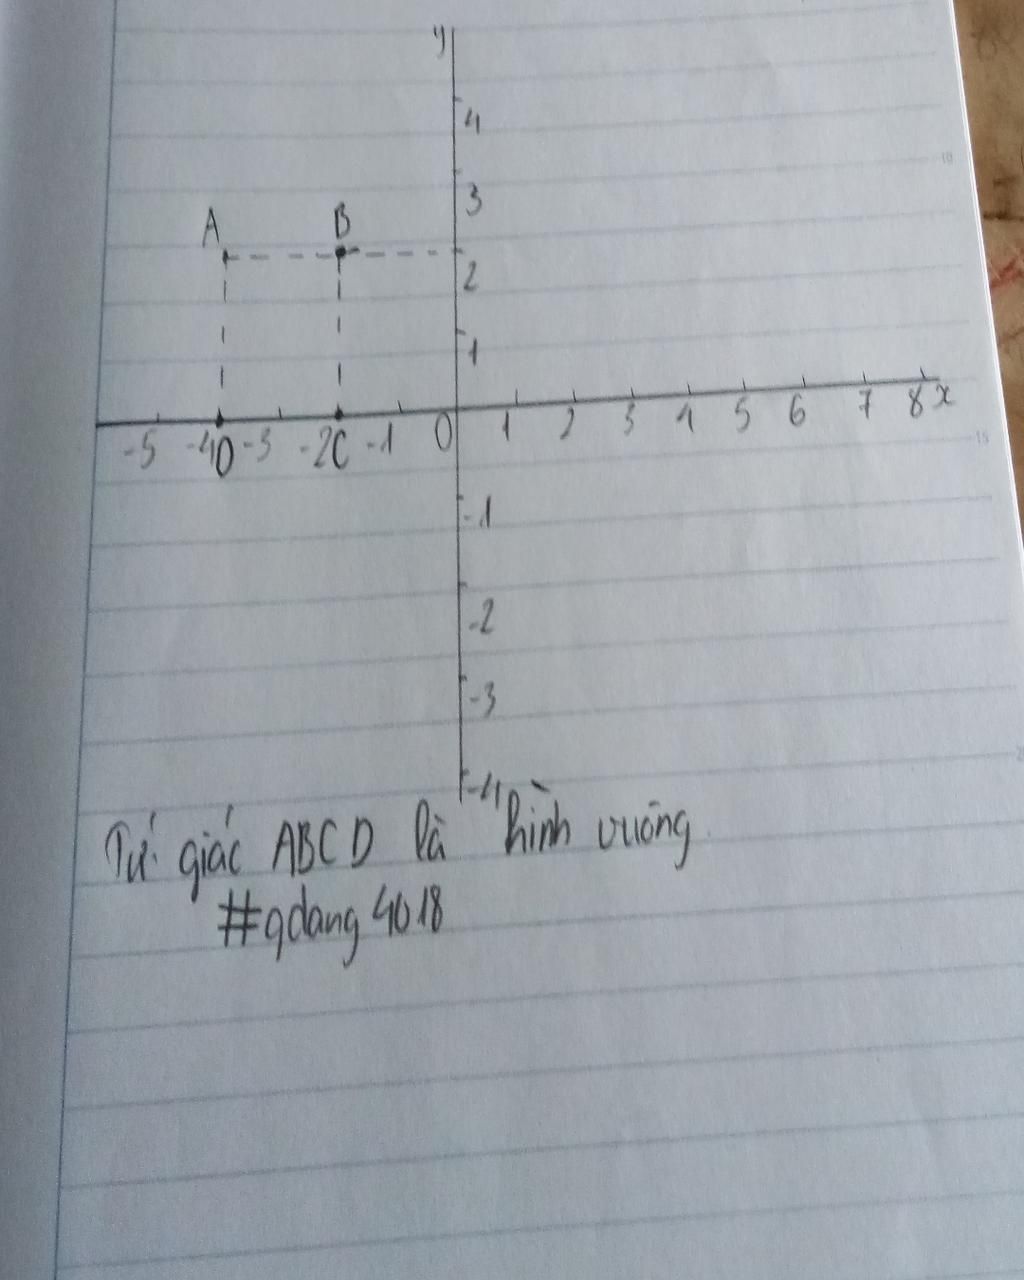 y
4
3
A B
2
1
-5 -4D -3 -2C -1 0 1 2 3 4 5 6 7 8 x
-1
-2
-3
-4
Tứ giác ABCD là hình vuông
#qdang4018